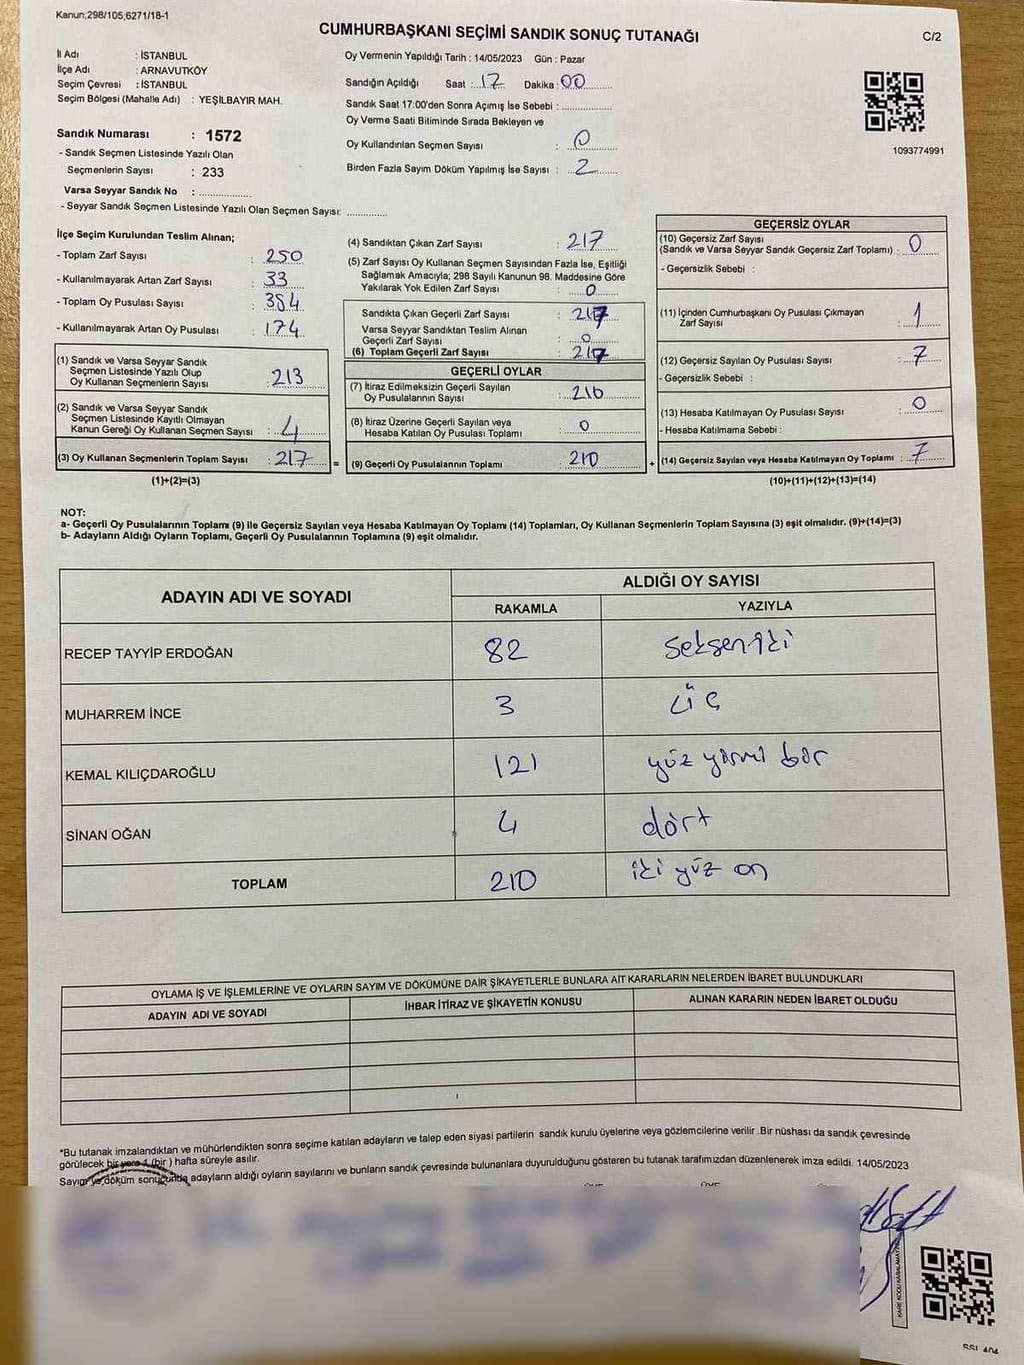 Kanun;298/105;6271/18-1
CUMHURBAŞKANI SEÇİMİ SANDIK SONUÇ TUTANAĞI
C/2
İl Adı : İSTANBUL
İlçe Adı : ARNAVUTKÖY
Seçim Çevresi : İSTANBUL
Seçim Bölgesi (Mahalle Adı) : YEŞİLBAYIR MAH.
Sandık Numarası : 1572
- Sandık Seçmen Listesinde Yazılı Olan
Seçmenlerin Sayısı : 233
Varsa Seyyar Sandık No :
- Seyyar Sandık Seçmen Listesinde Yazılı Olan Seçmen Sayısı:
Oy Vermenin Yapıldığı Tarih : 14/05/2023 Gün : Pazar
Sandığın Açıldığı Saat : 17 Dakika : 00
Sandık Saat 17:00'den Sonra Açımış İse Sebebi :
Oy Verme Saati Bitiminde Sırada Bekleyen ve
Oy Kullandırılan Seçmen Sayısı : 0
Birden Fazla Sayım Döküm Yapılmış İse Sayısı : 2
1093774991
İlçe Seçim Kurulundan Teslim Alınan;
- Toplam Zarf Sayısı : 250
- Kullanılmayarak Artan Zarf Sayısı : 33
- Toplam Oy Pusulası Sayısı : 384
- Kullanılmayarak Artan Oy Pusulası : 174
(1) Sandık ve Varsa Seyyar Sandık
Seçmen Listesinde Yazılı Olup
Oy Kullanan Seçmenlerin Sayısı : 213
(2) Sandık ve Varsa Seyyar Sandık
Seçmen Listesinde Kayıtlı Olmayan
Kanun Gereği Oy Kullanan Seçmen Sayısı : 4
(3) Oy Kullanan Seçmenlerin Toplam Sayısı : 217
(1)+(2)=(3)
(4) Sandıktan Çıkan Zarf Sayısı : 217
(5) Zarf Sayısı Oy Kullanan Seçmen Sayısından Fazla İse, Eşitliği
Sağlamak Amacıyla; 298 Sayılı Kanunun 98. Maddesine Göre
Yakılarak Yok Edilen Zarf Sayısı : 0
Sandıkta Çıkan Geçerli Zarf Sayısı : 217
Varsa Seyyar Sandıktan Teslim Alınan
Geçerli Zarf Sayısı : 0
(6) Toplam Geçerli Zarf Sayısı : 217
=
GEÇERLİ OYLAR
(7) İtiraz Edilmeksizin Geçerli Sayılan
Oy Pusulalarının Sayısı : 210
(8) İtiraz Üzerine Geçerli Sayılan veya
Hesaba Katılan Oy Pusulası Toplamı : 0
(9) Geçerli Oy Pusulalarının Toplamı : 210
+
GEÇERSİZ OYLAR
(10) Geçersiz Zarf Sayısı
(Sandık ve Varsa Seyyar Sandık Geçersiz Zarf Toplamı) : 0
- Geçersizlik Sebebi :
(11) İçinden Cumhurbaşkanı Oy Pusulası Çıkmayan
Zarf Sayısı : 1
(12) Geçersiz Sayılan Oy Pusulası Sayısı : 7
- Geçersizlik Sebebi :
(13) Hesaba Katılmayan Oy Pusulası Sayısı : 0
- Hesaba Katılmama Sebebi :
(14) Geçersiz Sayılan veya Hesaba Katılmayan Oy Toplamı : 7
(10)+(11)+(12)+(13)=(14)
NOT:
a- Geçerli Oy Pusulalarının Toplamı (9) ile Geçersiz Sayılan veya Hesaba Katılmayan Oy Toplamı (14) Toplamları, Oy Kullanan Seçmenlerin Toplam Sayısına (3) eşit olmalıdır. (9)+(14)=(3)
b- Adayların Aldığı Oyların Toplamı, Geçerli Oy Pusulalarının Toplamına (9) eşit olmalıdır.
ADAYIN ADI VE SOYADI ALDIĞI OY SAYISI
RAKAMLA YAZIYLA
RECEP TAYYİP ERDOĞAN 82 seksen iki
MUHARREM İNCE 3 üç
KEMAL KILIÇDAROĞLU 121 yüz yirmi bir
SİNAN OĞAN 4 dört
TOPLAM 210 iki yüz on
OYLAMA İŞ VE İŞLEMLERİNE VE OYLARIN SAYIM VE DÖKÜMÜNE DAİR ŞİKAYETLERLE BUNLARA AİT KARARLARIN NELERDEN İBARET BULUNDUKLARI
ADAYIN ADI VE SOYADI İHBAR İTİRAZ VE ŞİKAYETİN KONUSU ALINAN KARARIN NEDEN İBARET OLDUĞU
*Bu tutanak imzalandıktan ve mühürlendikten sonra seçime katılan adayların ve talep eden siyasi partilerin sandık kurulu üyelerine veya gözlemcilerine verilir .Bir nüshası da sandık çevresinde
görülecek bir yere 1 (bir ) hafta süreyle asılır.
Sayım ve döküm sonucunda adayların aldığı oyların sayılarını ve bunların sandık çevresinde bulunanlara duyurulduğunu gösteren bu tutanak tarafımızdan düzenlenerek imza edildi. 14/05/2023